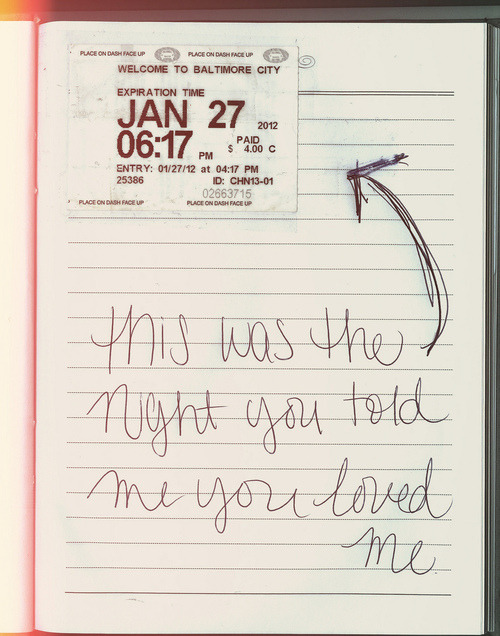 PLACE ON DASH FACE UP PLACE ON DASH FACE UP
WELCOME TO BALTIMORE CITY
EXPIRATION TIME
JAN 27 2012
06:17 PM
PAID
$ 4.00 C
ENTRY: 01/27/12 at 04:17 PM
25386 ID: CHN13-01
02663715
PLACE ON DASH FACE UP PLACE ON DASH FACE UP
this was the
night you told
me you loved
me.